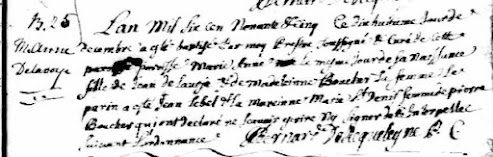 B. 26 Lan Mil Six Cen Nonante et Cinq Ce dixhuitieme Jour de
M. Anne decembre a esté baptisé Par moy Prestre soussigné Curé de cette
Delavoye paroisse Marie Anne née le mesme Jour de sa Naissance
fille de Jean de Lavoye et de Madeleinne Boucher sa femme le
parin a esté Jean Lebel et la Mareinne Marie St Denis femme de pierre
Boucher qui ont declaré ne scavoir ecrire Ny Signer de ce Interpellez
suivant l'ordonnance Bernard Deroqueleyne P. C